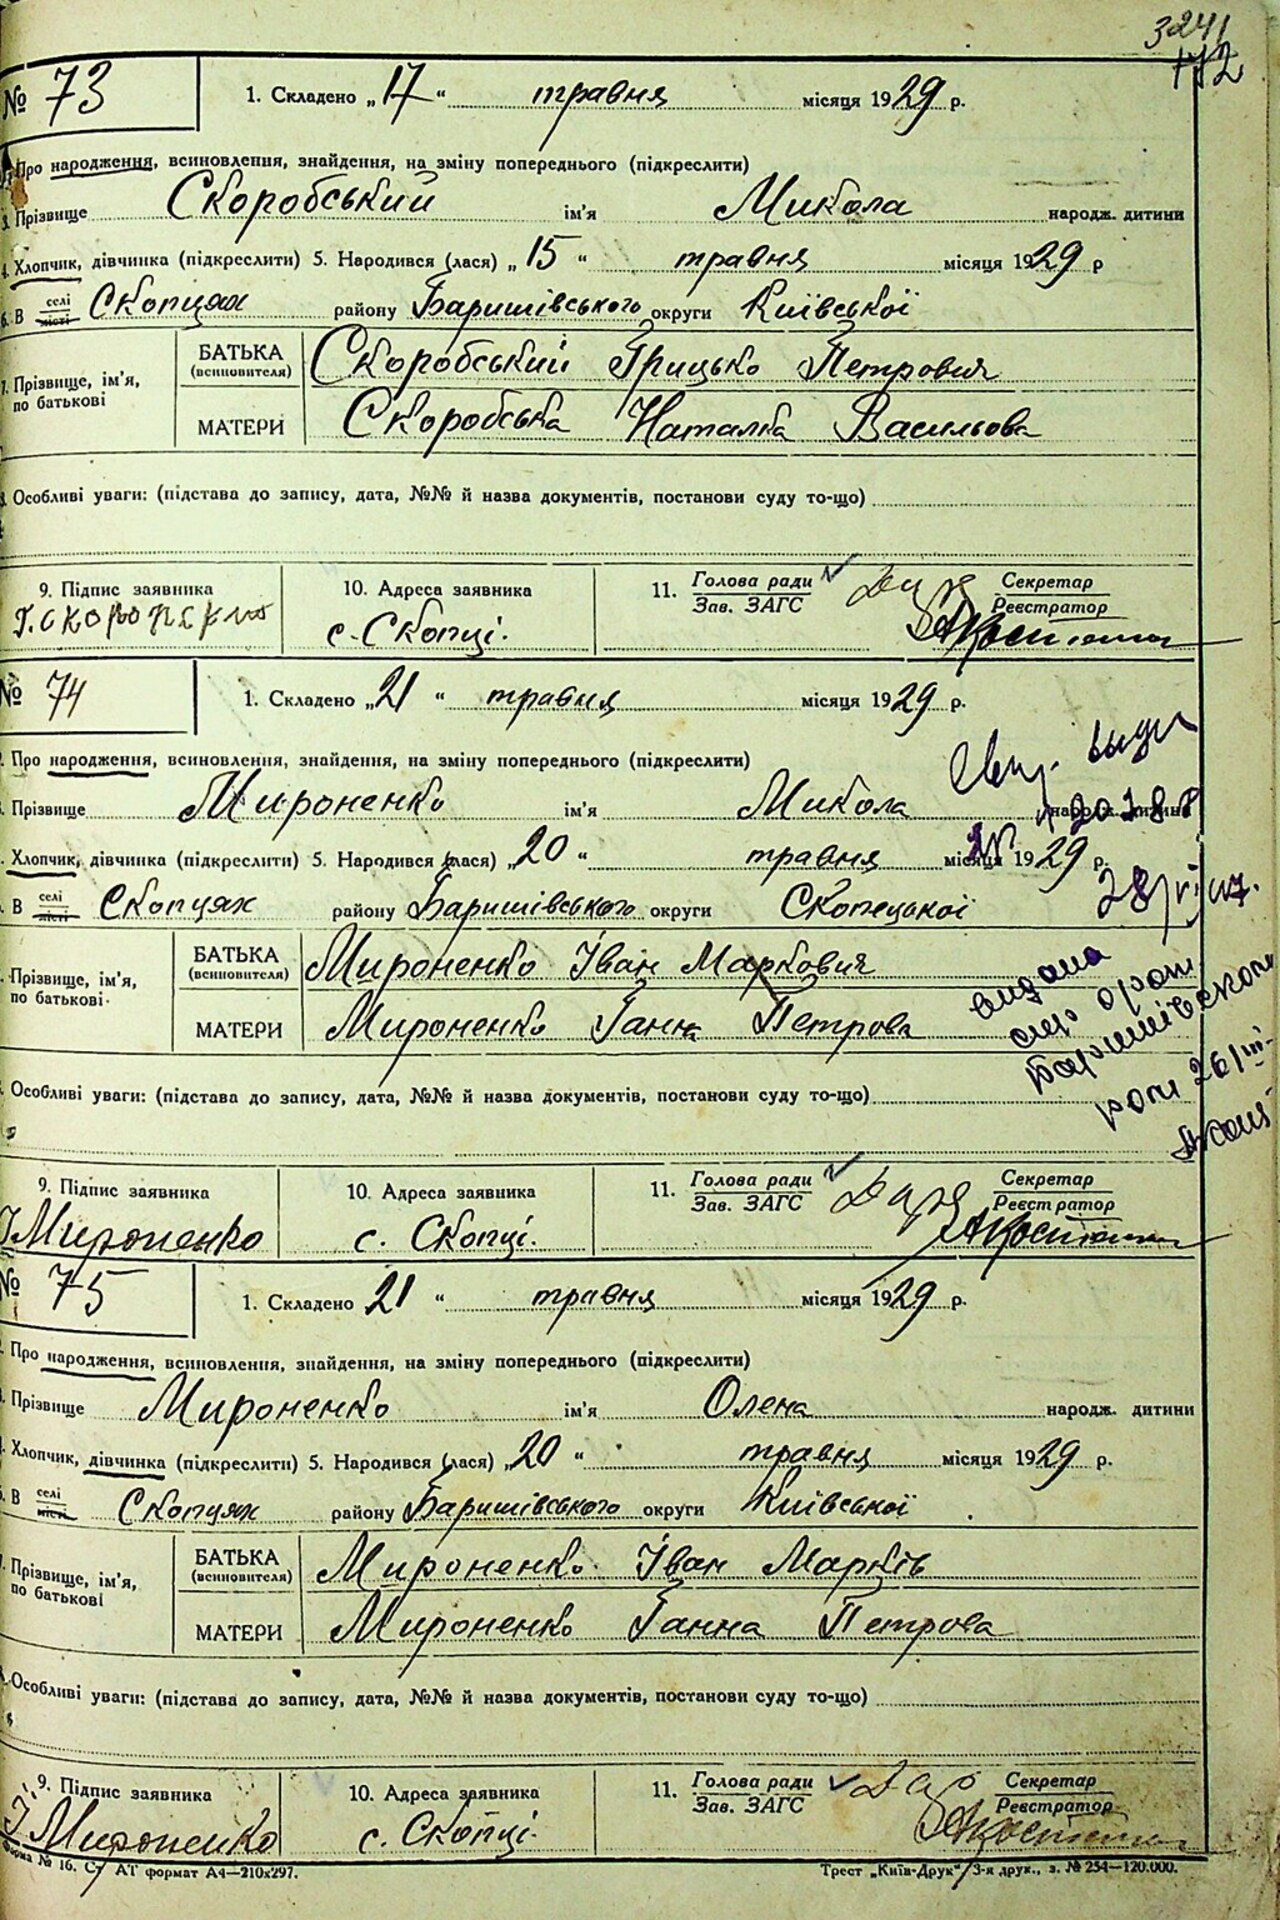 3241
172
№ 73 1. Складено „17“ травня місяця 1929 р.
Про народження, всиновлення, знайдення, на зміну попереднього (підкреслити)
3. Прізвище Скоробський ім'я Микола народж. дитини
4. Хлопчик, дівчинка (підкреслити) 5. Народився (лася) „15“ травня місяця 1929 р
6. В селі місті Скопцях району Баришівського округи Київської
7. Прізвище, ім'я, по батькові БАТЬКА (всиновителя) Скоробський Грицько Петрович
МАТЕРИ Скоробська Наталка Васильова
Особливі уваги: (підстава до запису, дата, №№ й назва документів, постанови суду то-що)
9. Підпис заявника 10. Адреса заявника 11. Голова ради Зав. ЗАГС Секретар Реєстратор
с. Скопці.
№ 74 1. Складено „21“ травня місяця 1929 р.
Про народження, всиновлення, знайдення, на зміну попереднього (підкреслити)
Прізвище Мироненко ім'я Микола народж. дитини
Хлопчик, дівчинка (підкреслити) 5. Народився (лася) „20“ травня місяця 1929 р.
В селі місті Скопцях району Баришівського округи Скопецької
Прізвище, ім'я, по батькові БАТЬКА (всиновителя) Мироненко Іван Маркович
МАТЕРИ Мироненко Ганна Петрова
видана
Особливі уваги: (підстава до запису, дата, №№ й назва документів, постанови суду то-що)
9. Підпис заявника 10. Адреса заявника 11. Голова ради Зав. ЗАГС Секретар Реєстратор
І Мироненко с. Скопці.
№ 75 1. Складено 21“ травня місяця 1929 р.
Про народження, всиновлення, знайдення, на зміну попереднього (підкреслити)
Прізвище Мироненко ім'я Олена народж. дитини
Хлопчик, дівчинка (підкреслити) 5. Народився (лася) „20“ травня місяця 1929 р.
В селі місті Скопцях району Баришівського округи Київської
Прізвище, ім'я, по батькові БАТЬКА (всиновителя) Мироненко Іван Марків
МАТЕРИ Мироненко Ганна Петрова
Особливі уваги: (підстава до запису, дата, №№ й назва документів, постанови суду то-що)
9. Підпис заявника 10. Адреса заявника 11. Голова ради Зав. ЗАГС Секретар Реєстратор
І. Мироненко с. Скопці.
Форма № 16. Ст АТ формат А4—210х297. Трест „Київ-Друк“ 3-я друк., з. № 254—120.000.